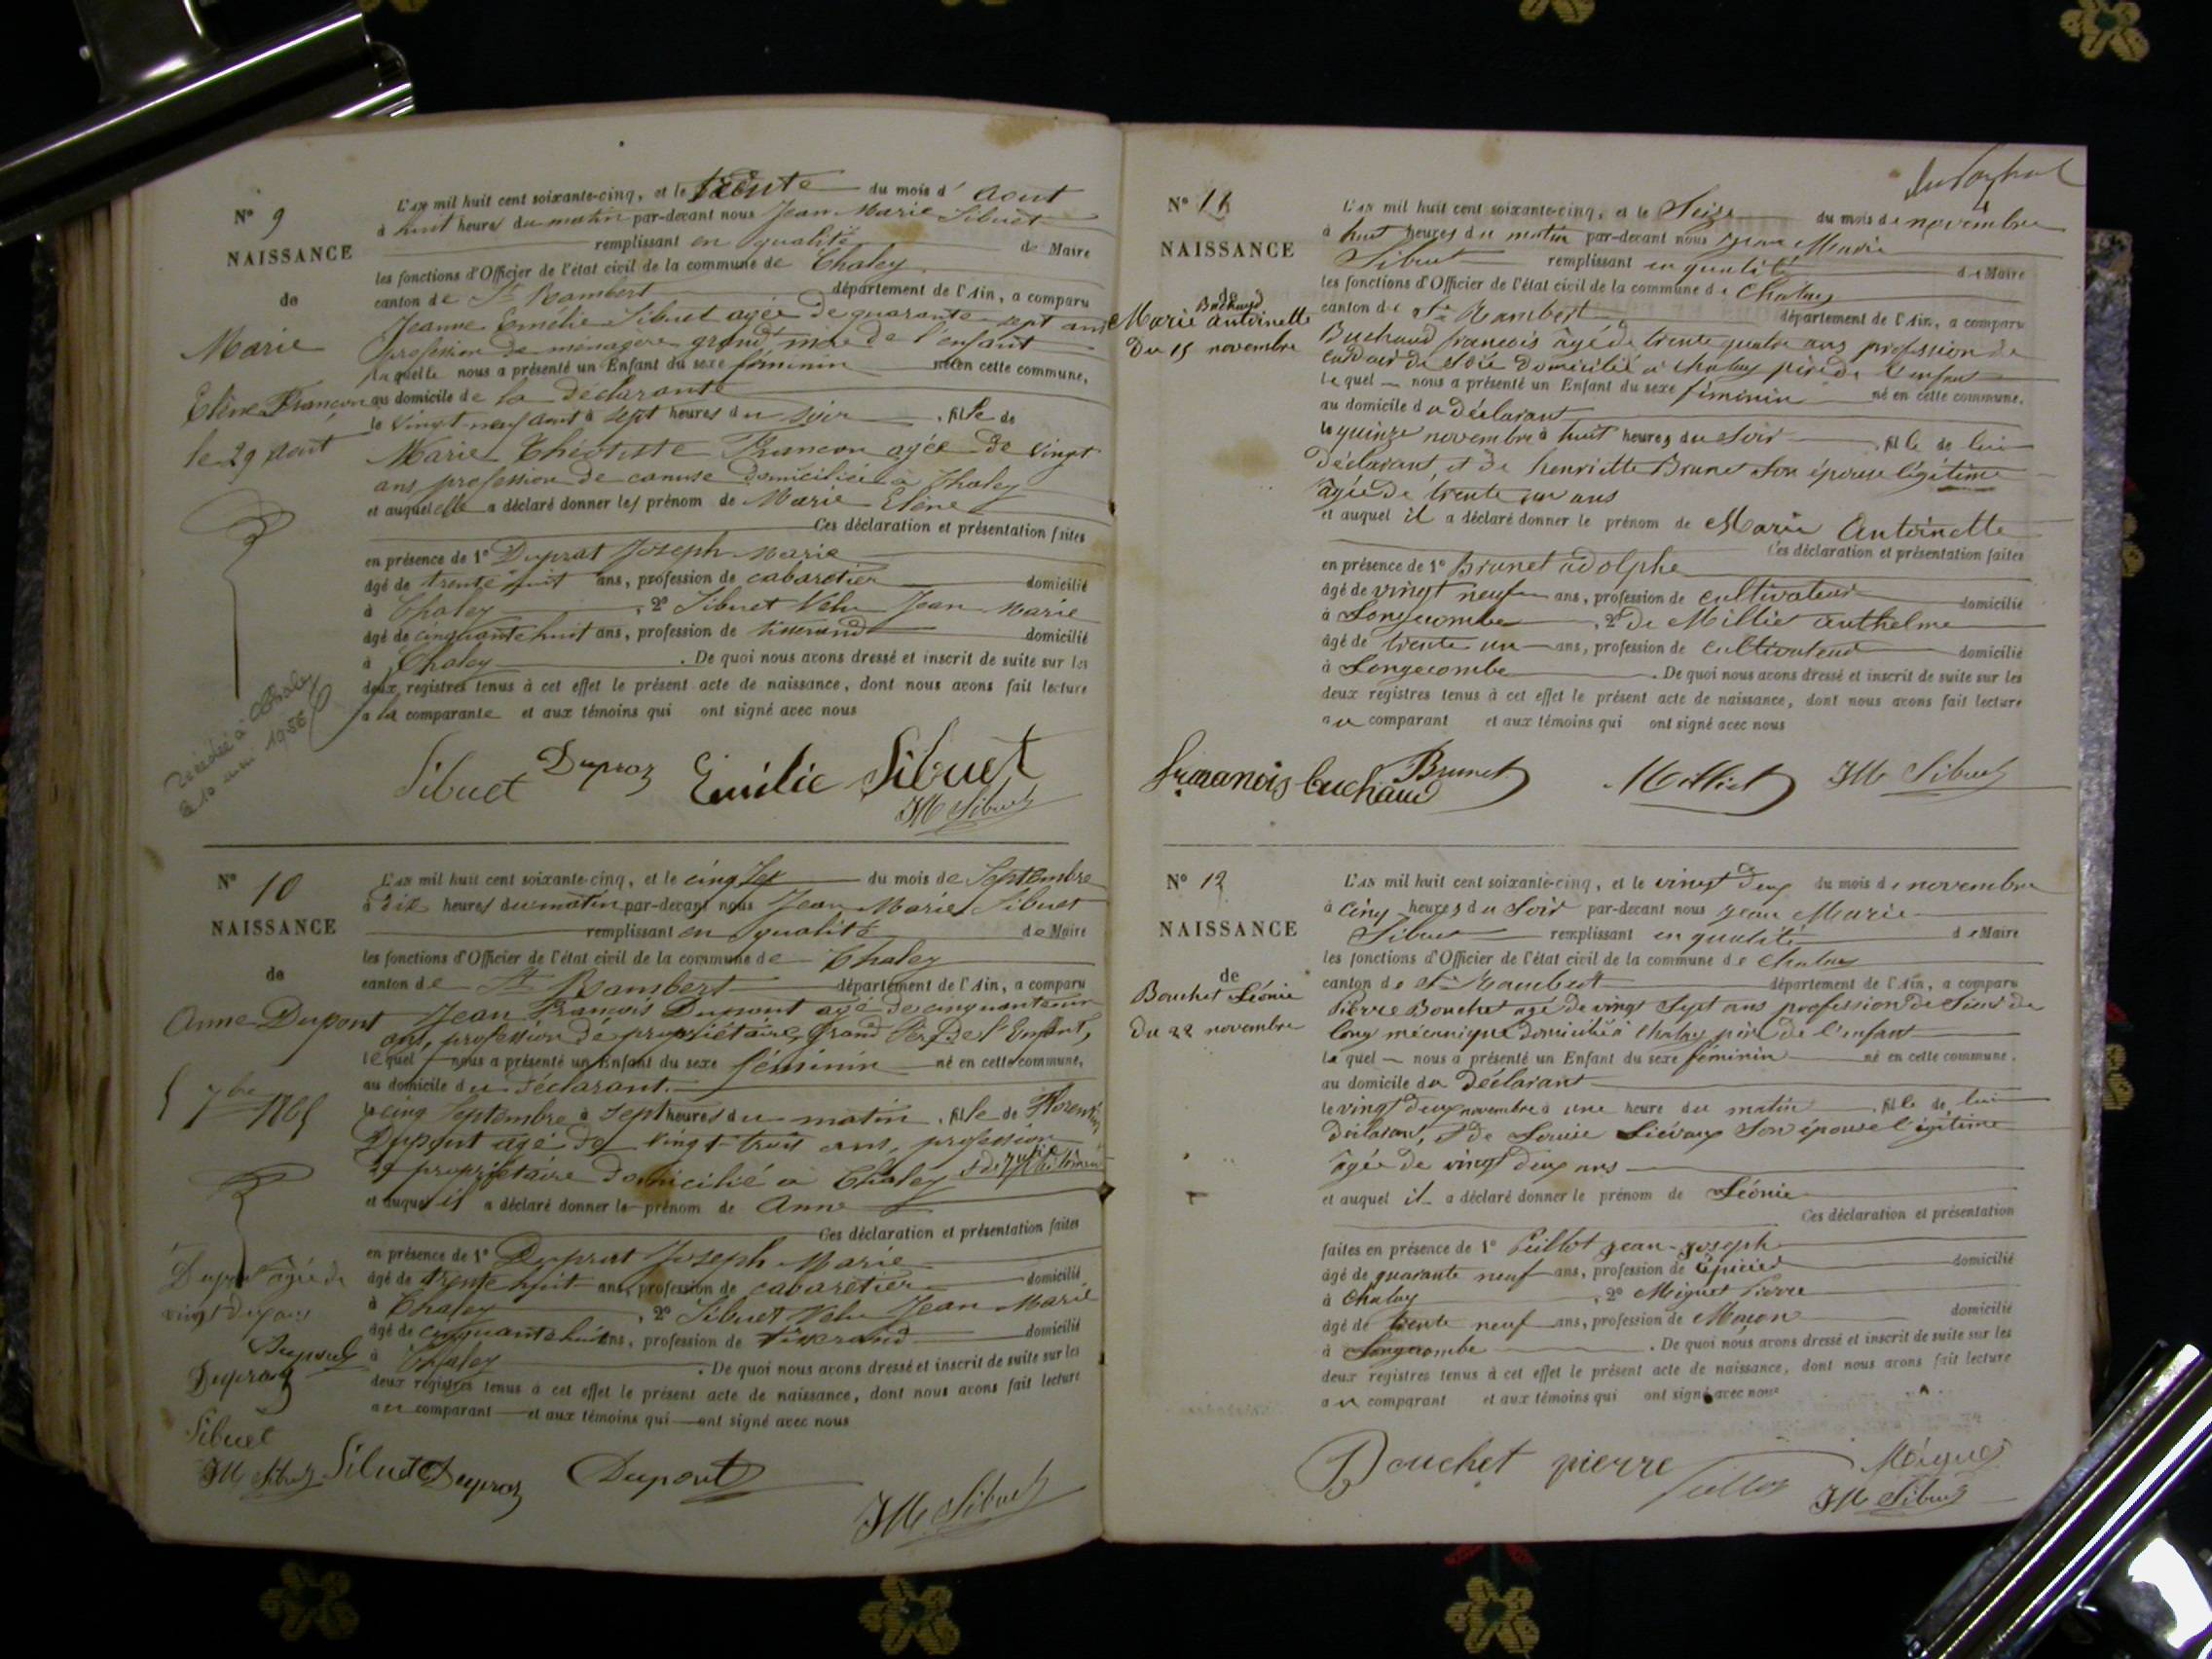 N° 9
NAISSANCE
de
Marie
Elène Françon
le 29 Aout
Décédée à Chaley
L'AN mil huit cent soixante-cinq, et le trente du mois d' Aout
à huit heures du matin par-devant nous Jean Marie Sibuet
remplissant en qualité de Maire
les fonctions d'Officier de l'état civil de la commune de Chaley
canton de St Rambert département de l'Ain, a comparu
Jeanne Emélie Sibuet agée de quarante sept ans
profession de ménagère grand mère de l'enfant
laquelle nous a présenté un Enfant du sexe féminin né en cette commune,
au domicile de la déclarante
le vingt-neuf aout à sept heures du soir , fille de
Marie Théotiste Françon agée de vingt
ans profession de canuse domiciliée à Chaley
et auquel elle a déclaré donner les prénom de Marie Elène
Ces déclaration et présentation faites
en présence de 1° Dupraz Joseph Marie
âgé de trente huit ans, profession de cabaretier domicilié
à Chaley , 2° Sibuet Velu Jean Marie
âgé de cinquante huit ans, profession de tisserand domicilié
à Chaley . De quoi nous avons dressé et inscrit de suite sur les
deux registres tenus à cet effet le présent acte de naissance, dont nous avons fait lecture
a la comparante et aux témoins qui ont signé avec nous
Sibuet Dupraz Emilie Sibuet
JM Sibuet
N° 10
NAISSANCE
de
Anne Dupont
5 7bre 1865
Dupont âgée de
vingt deux ans
Dupont
Dupraz
Sibuet
JM Sibuet
L'AN mil huit cent soixante-cinq, et le cinq Sep du mois de Septembre
à dix heures du matin par-devant nous Jean Marie Sibuet
remplissant en qualité de Maire
les fonctions d'Officier de l'état civil de la commune de Chaley
canton de St Rambert département de l'Ain, a comparu
Jean François Dupont agé de cinquante
ans, profession de propriétaire, Grand Père de l'Enfant,
lequel nous a présenté un Enfant du sexe féminin né en cette commune,
au domicile du déclarant.
le cinq Septembre à sept heures du matin , fille de Florentin
Dupont agé de vingt-trois ans, profession
de propriétaire domicilié à Chaley
et auquel il a déclaré donner le prénom de Anne
Ces déclaration et présentation faites
en présence de 1° Dupraz Joseph Marie
âgé de trente huit ans, profession de cabaretier domicilié
à Chaley , 2° Sibuet Velu Jean Marie
âgé de cinquante huit ans, profession de tisserand domicilié
à Chaley . De quoi nous avons dressé et inscrit de suite sur les
deux registres tenus à cet effet le présent acte de naissance, dont nous avons fait lecture
au comparant et aux témoins qui ont signé avec nous
Sibuet Dupraz Dupont
JM Sibuet
N° 11
NAISSANCE
de
Buchaud
Marie Antoinette
Du 15 novembre
L'AN mil huit cent soixante-cinq, et le Seize du mois de novembre
à huit heures du matin par-devant nous Jean Marie
Sibuet remplissant en qualité de Maire
les fonctions d'Officier de l'état civil de la commune de Chaley
canton de St Rambert département de l'Ain, a comparu
Buchaud françois âgé de trente quatre ans profession de
cardeur de soie domicilié à Chaley père de l'enfant
lequel nous a présenté un Enfant du sexe féminin né en cette commune,
au domicile du déclarant
le quinze novembre à huit heures du Soir fille de lui
Déclarant, et de henriette Brunet Son épouse légitime
âgée de trente un ans
et auquel il a déclaré donner le prénom de Marie Antoinette
Ces déclaration et présentation faites
en présence de 1° Brunet adolphe
âgé de vingt neuf ans, profession de cultivateur domicilié
à Longecombe , 2° de Milliet anthelme
âgé de trente un ans, profession de cultivateur domicilié
à Longecombe . De quoi nous avons dressé et inscrit de suite sur les
deux registres tenus à cet effet le présent acte de naissance, dont nous avons fait lecture
au comparant et aux témoins qui ont signé avec nous
buchaud Brunet Milliet JM Sibuet
N° 12
NAISSANCE
de
Bouchet Léonie
Du 22 novembre
L'AN mil huit cent soixante-cinq, et le vingt deux du mois de novembre
à cinq heures du Soir par-devant nous Jean Marie
Sibuet remplissant en qualité de Maire
les fonctions d'Officier de l'état civil de la commune de Chaley
canton de St Rambert département de l'Ain, a comparu
Pierre Bouchet agé de vingt Sept ans profession de
mécanique domicilié à Chaley père de l'enfant
lequel nous a présenté un Enfant du sexe féminin né en cette commune,
au domicile du Déclarant
le vingt deux novembre à une heure du matin fille de lui
Déclarant, et de Louise Son épouse légitime
âgée de vingt deux ans
et auquel il a déclaré donner le prénom de Léonie
Ces déclaration et présentation
faites en présence de 1° Peillot jean-joseph
âgé de quarante neuf ans, profession de Epicier domicilié
à Chaley , 2° Miguet Pierre
âgé de trente neuf ans, profession de Maçon domicilié
à Longecombe . De quoi nous avons dressé et inscrit de suite sur les
deux registres tenus à cet effet le présent acte de naissance, dont nous avons fait lecture
au comparant et aux témoins qui ont signé avec nous
Bouchet pierre Peillot Miguet
JM Sibuet